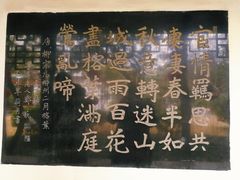 宦情羈思共
凄凄春半如
秋意轉迷山
城過雨百花
盡榕葉滿庭
鶯亂啼
唐柳宗元柳州二月榕葉